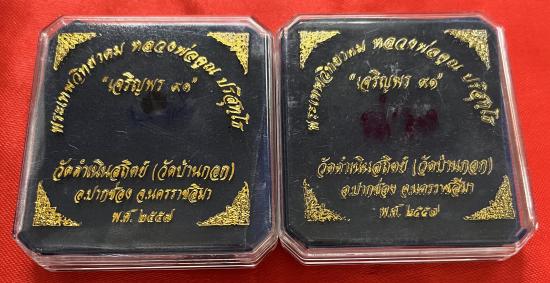 พระเทพวิทยาคม หลวงพ่อคูณ ปริสุทโธ
"เจริญพร ๙๑"
วัดดำเนินสถิตย์ (วัดบ้านกอก)
อ.ปากช่อง จ.นครราชสีมา
พ.ศ. ๒๕๕๗
พระเทพวิทยาคม หลวงพ่อคูณ ปริสุทโธ
"เจริญพร ๙๑"
วัดดำเนินสถิตย์ (วัดบ้านกอก)
อ.ปากช่อง จ.นครราชสีมา
พ.ศ. ๒๕๕๗